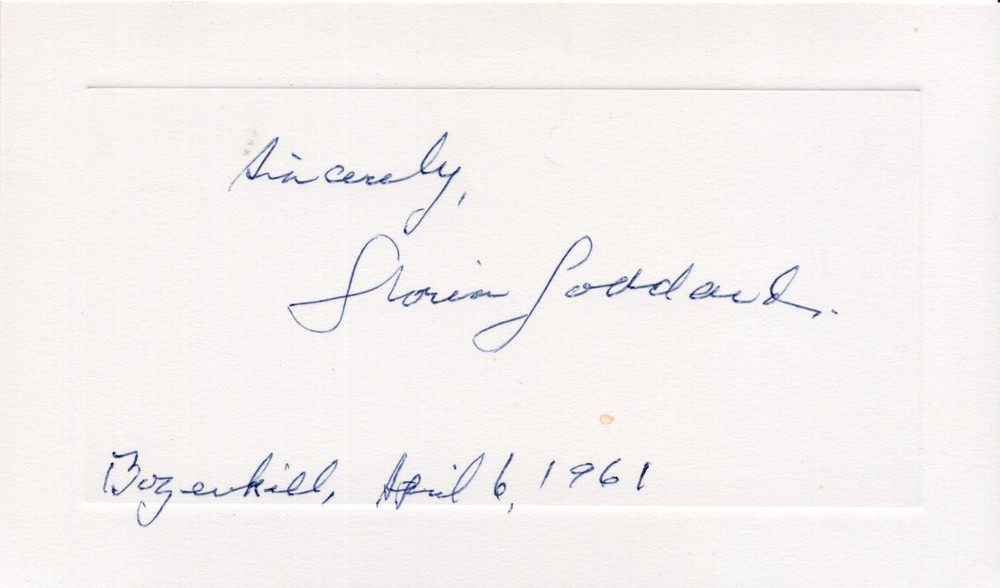 Sincerely,
Gloria Goddard.
Bozenkill, April 6, 1961